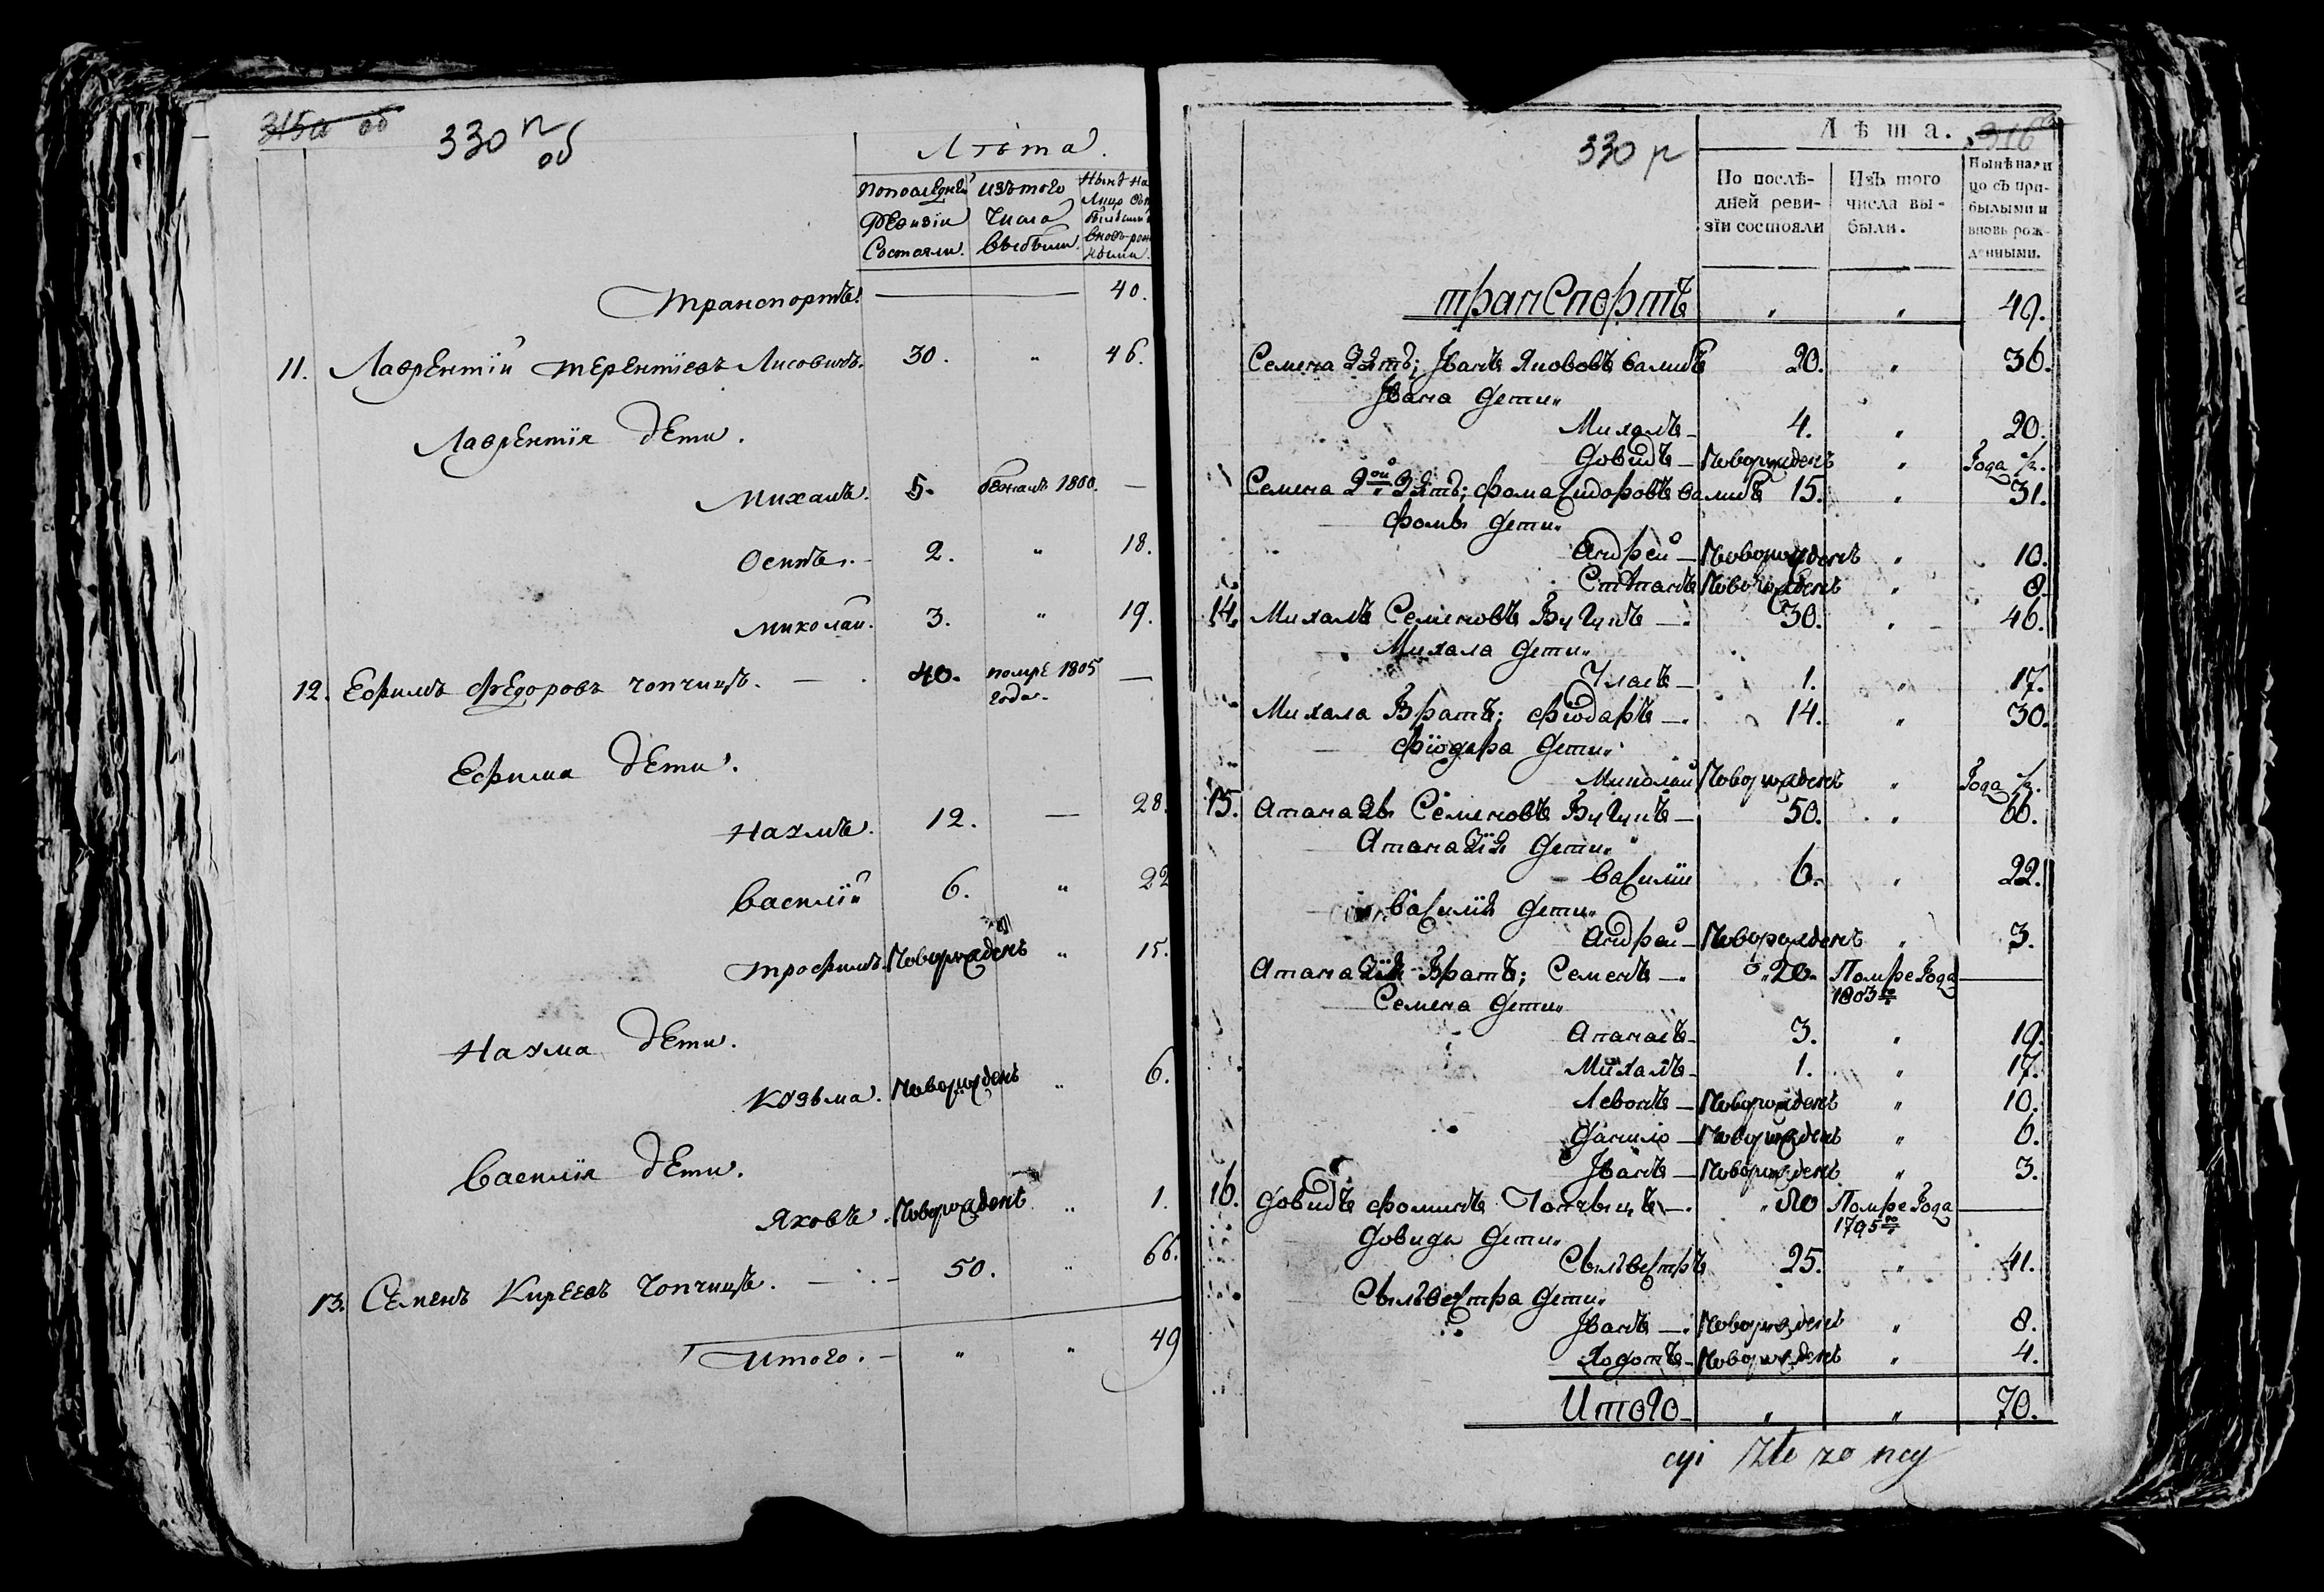 315а об
330 п об
Лѣта.
Попоследней Ревизіи Состояли.
изъ того Числа Выбыли.
Транспортъ. — 40.
11. Лаврентій Терентіевъ Лисовичъ. 30. " 46.
Лаврентія дети.
Михалъ. 5. бежалъ 1800. —
Осипъ. 2. " 18.
Миколай. 3. " 19.
12. Ефимъ Федоровъ Чопчицъ. — 40. помре 1805 года. —
Ефима дети.
Нахимъ. 12. — 28.
Василій 6. " 22
Трофимъ. Новорожденъ " 15.
Нахима дети.
Козьма. Новорожденъ " 6.
Василія дети.
Яковъ. Новорожденъ " 1.
13. Семенъ Киреевъ Чопчицъ. — 50. " 66.
Итого. — " " 49
330 р
316
Лѣта.
По послѣ-
дней реви-
зіи состояли
Изъ того
числа вы-
были.
Нынѣ нали
цо съ при-
былыми и
вновь рож-
денными.
транспортъ " " 49.
Семена Зять; Иванъ Яковов 20. " 36.
Ивана дети
Михалъ — 4. " 20.
Довидъ — Новорожденъ " Года ½.
Семена 2ой Зять; Фома Сидоровъ 15. " 31.
Фомы дети
Андрей — Новорожденъ " 10.
Степанъ Новорожденъ " 8.
14. Михалъ Семеновъ — 30. " 46.
Михала дети
1. " 17.
Михала Братъ; Фіодаръ — 14. " 30.
Фіодара дети
Миколай Новорожденъ " Года ½.
15. Апаназъ Семеновъ — 50. " 66.
Апаназія дети
Василій 6. " 22.
Василія дети
Андрей — Новорожденъ " 3.
Апаназія Братъ; Семенъ — 20. Помре Года 1803го —
Семена дети
Апанасъ — 3. " 19.
Михалъ — 1. " 17.
Левонъ — Новорожденъ " 10.
Данило — Новорожденъ " 6.
Иванъ — Новорожденъ " 3.
16. Довидъ Фоминъ — 80 Помре Года 1795го —
Довида дети
Сыльвестръ 25. " 41.
Сыльвестра дети
Иванъ — Новорожденъ " 8.
Ходотъ — Новорожденъ " 4.
Итого — " " 70.